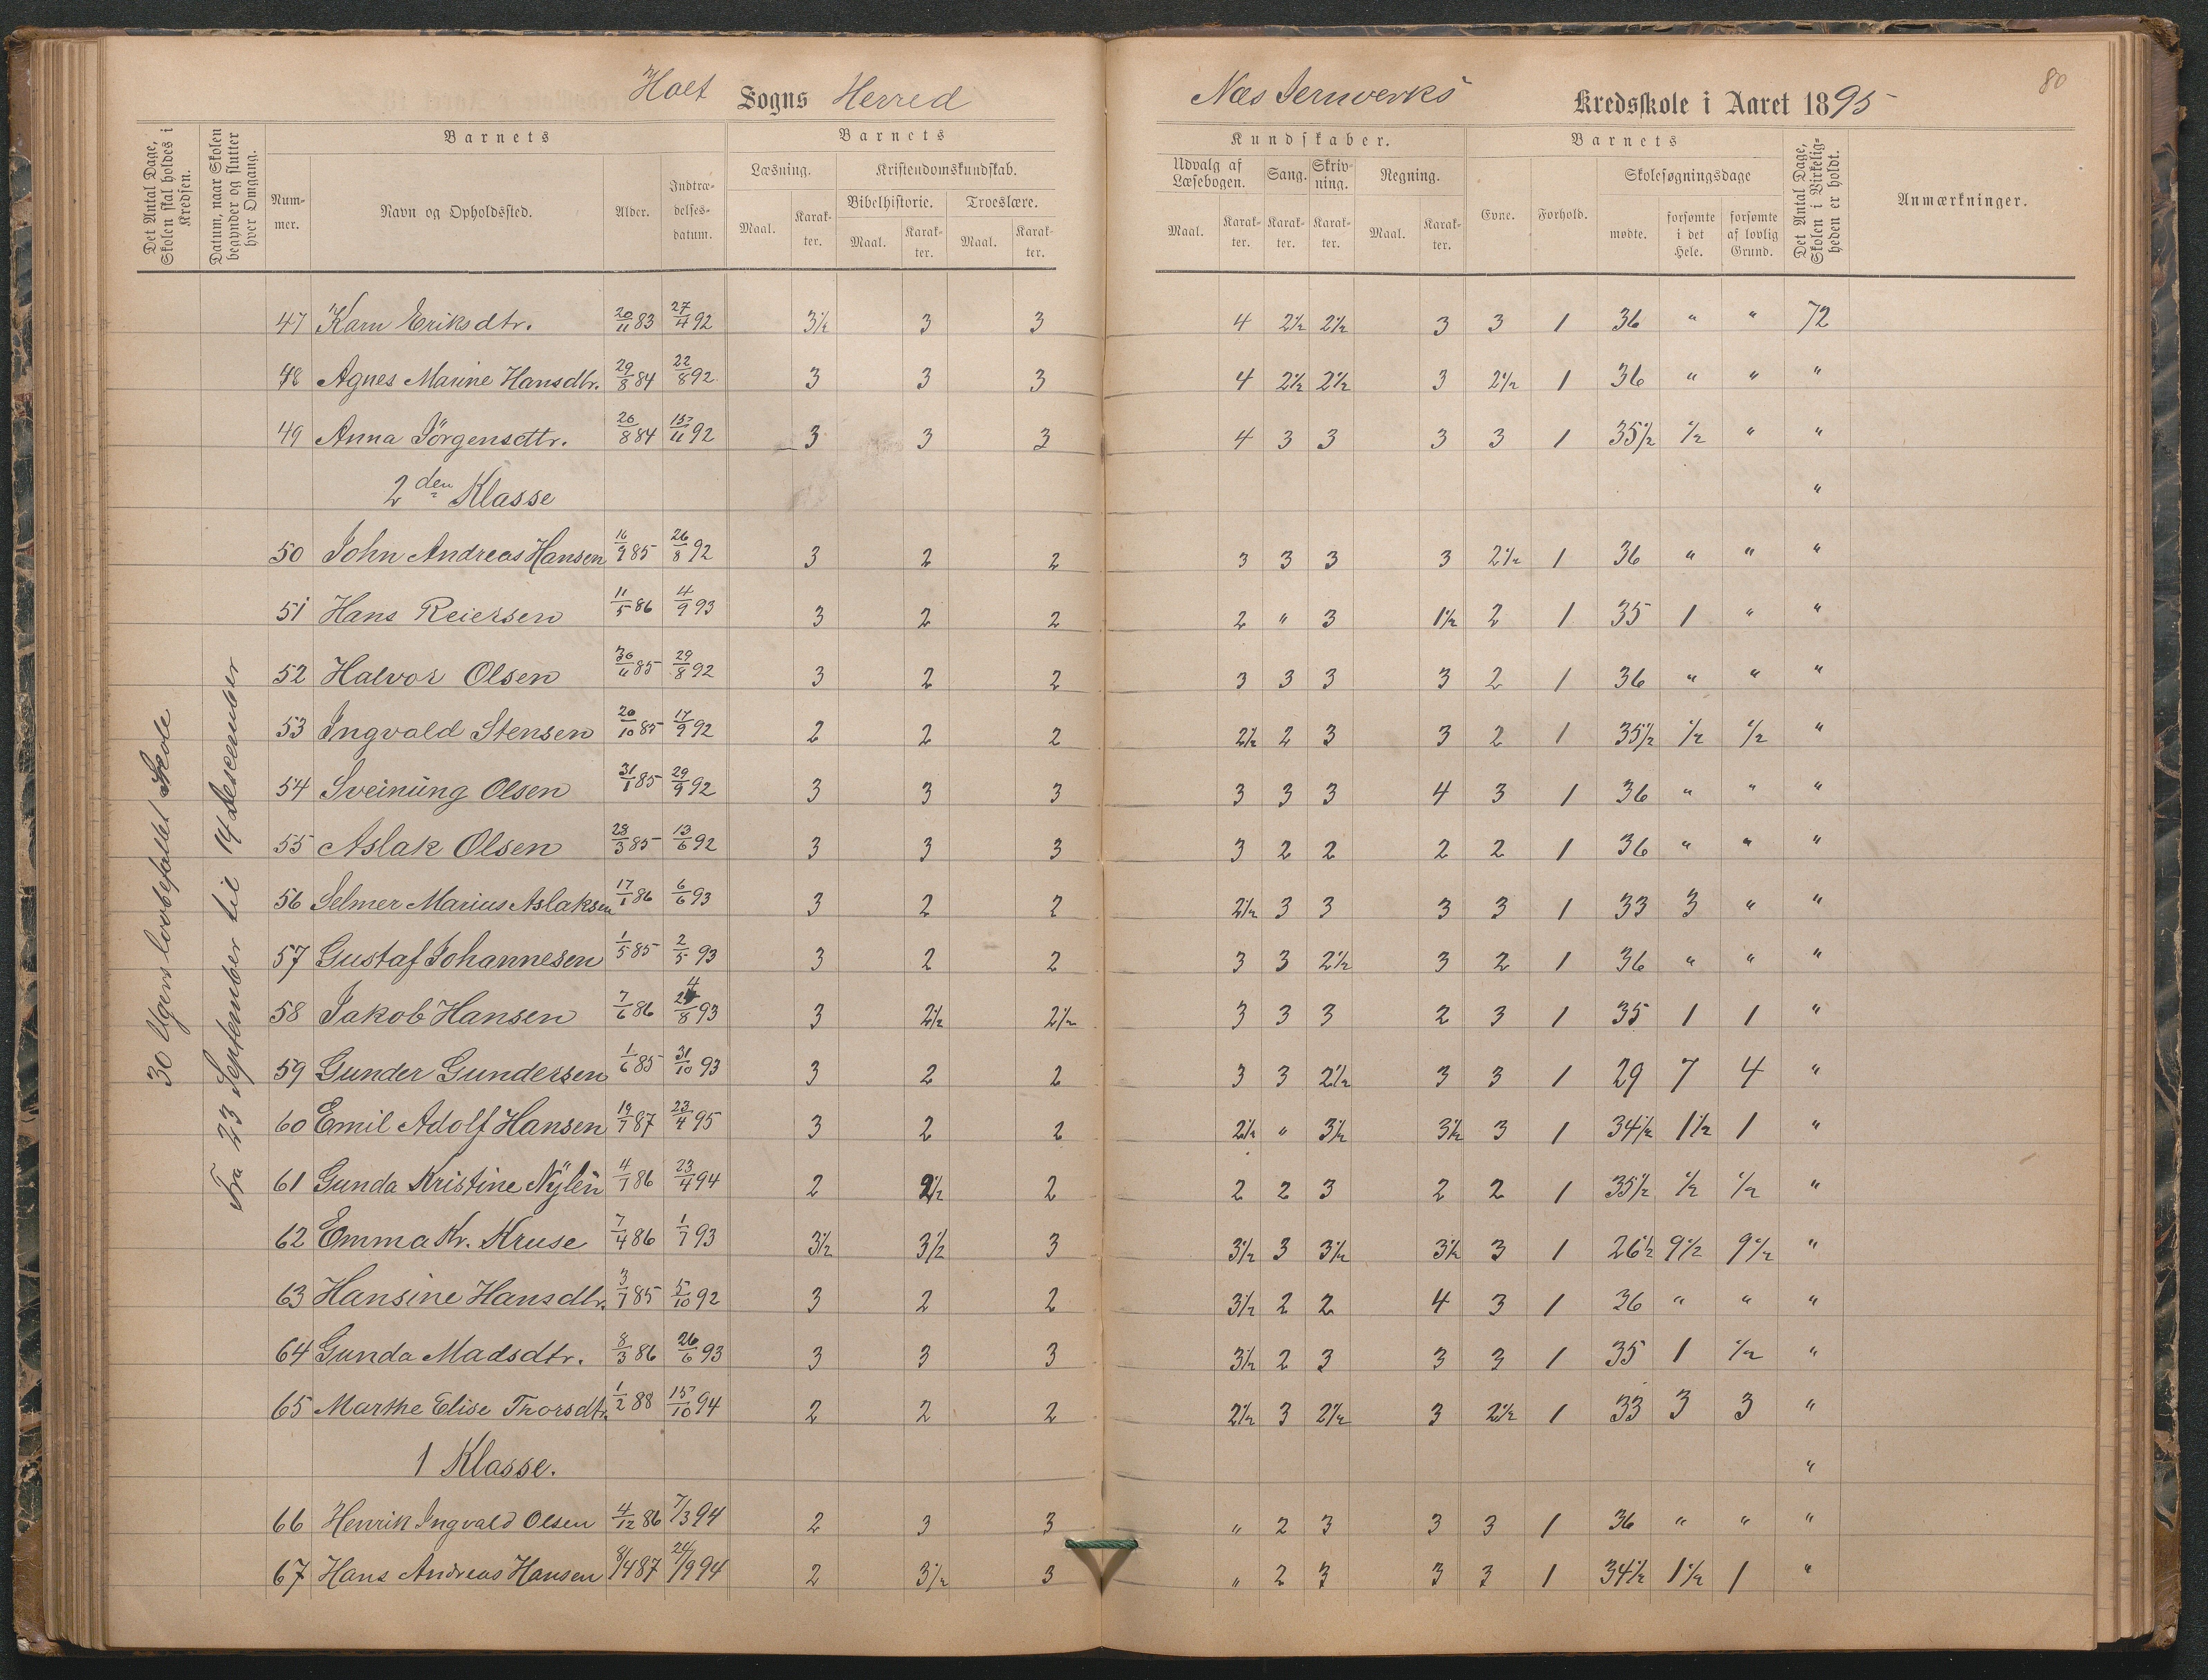 Holt Sogns Herred
Næs Jernverks Kredsskole i Aaret 1895
80
Det Antal Dage, Skolen skal holdes i Kredsen.
Datum, naar Skolen begynder og slutter hver Omgang.
Barnets
Nummer.
Navn og Opholdssted.
Alder.
Indtrædelsesdatum.
Barnets
Læsning.
Maal.
Karakter.
Kristendomskundskab.
Bibelhistorie.
Maal.
Karakter.
Troeslære.
Maal.
Karakter.
Kundskaber.
Udvalg af Læsebogen.
Maal.
Karakter.
Sang.
Karakter.
Skrivning.
Karakter.
Regning.
Maal.
Karakter.
Barnets
Evne.
Forhold.
Skolesøgningsdage
mødte.
forsømte i det Hele.
forsømte af lovlig Grund.
Det Antal Dage, Skolen i Virkeligheden er holdt.
Anmærkninger.
30 Ugers lovbefalet Skole
Fra 23 September til 14 Desember
47 Karn Eriksdtr. 20/11 83 27/4 92 3½ 3 3 4 2½ 2½ 3 3 1 36 " " 72
48 Agnes Marine Hansdtr. 29/8 84 22/8 92 3 3 3 4 2½ 2½ 3 2½ 1 36 " " "
49 Anna Jörgensdtr. 26/8 84 15/11 92 3 3 3 4 3 3 3 3 1 35½ ½ " "
2den Klasse "
50 John Andreas Hansen 16/9 85 26/8 92 3 2 2 3 3 3 3 2½ 1 36 " " "
51 Hans Reiersen 11/5 86 4/9 93 3 2 2 2 " 3 1½ 2 1 35 1 " "
52 Halvor Olsen 30/11 85 29/8 92 3 2 2 3 3 3 3 2 1 36 " " "
53 Ingvald Stensen 20/10 85 17/9 92 2 2 2 2½ 2 3 3 2 1 35½ ½ ½ "
54 Sveinung Olsen 31/1 85 29/9 92 3 3 3 3 3 3 4 3 1 36 " " "
55 Aslak Olsen 28/3 85 13/6 92 3 3 3 3 2 2 2 2 1 36 " " "
56 Selmer Marius Aslaksen 17/1 86 6/6 93 3 2 2 2½ 3 3 3 3 1 33 3 " "
57 Gustaf Johannesen 1/5 85 2/5 93 3 2 2 3 3 2½ 3 2 1 36 " " "
58 Jakob Hansen 7/6 86 24/8 93 3 2½ 2½ 3 3 3 2 3 1 35 1 1 "
59 Gunder Gundersen 1/6 85 31/10 93 3 2 2 3 3 2½ 3 3 1 29 7 4 "
60 Emil Adolf Hansen 19/7 87 23/4 95 3 2 2 2½ " 3½ 3½ 3 1 34½ 1½ 1 "
61 Gunda Kristine Nylén 4/7 86 23/4 94 2 2½ 2 2 2 3 2 2 1 35½ ½ ½ "
62 Emma Kr. Kruse 7/4 86 1/7 93 3½ 3½ 3 3½ 3 3½ 3½ 3 1 26½ 9½ 9½ "
63 Hansine Hansdtr. 3/7 85 5/10 92 3 2 2 3½ 2 2 4 3 1 36 " " "
64 Gunda Madsdtr. 8/3 86 26/6 93 3 3 3 3½ 2 3 3 3 1 35 1 ½ "
65 Marthe Elise Thorsdtr. 1/2 88 15/10 94 2 2 2 2½ 3 2½ 3 2½ 1 33 3 3 "
1 Klasse. "
66 Henrik Ingvald Olsen 4/12 86 7/3 94 2 3 3 " 2 3 3 3 1 36 " " "
67 Hans Andreas Hansen 8/4 87 24/9 94 2 3½ 3 " 2 3 3 3 1 34½ 1½ 1 "